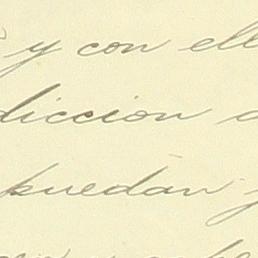 y con ell
diccion
puedan